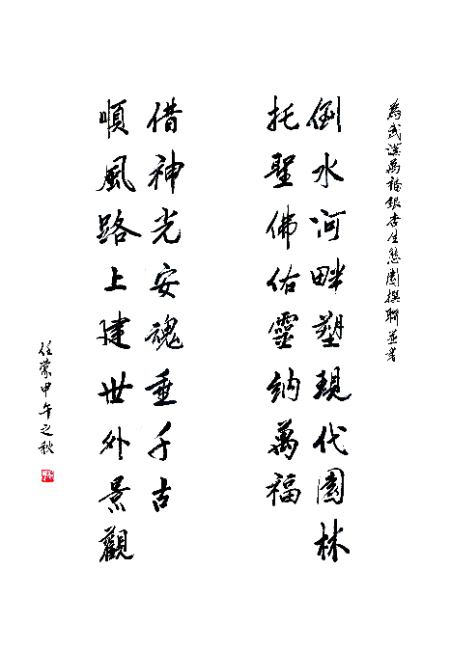 為武漢萬福銀杏生態園撰聯並書
倒水河畔塑現代園林
托聖佛佑靈納萬福
順風路上建世外景觀
借神光安魂垂千古
任蒙甲午之秋